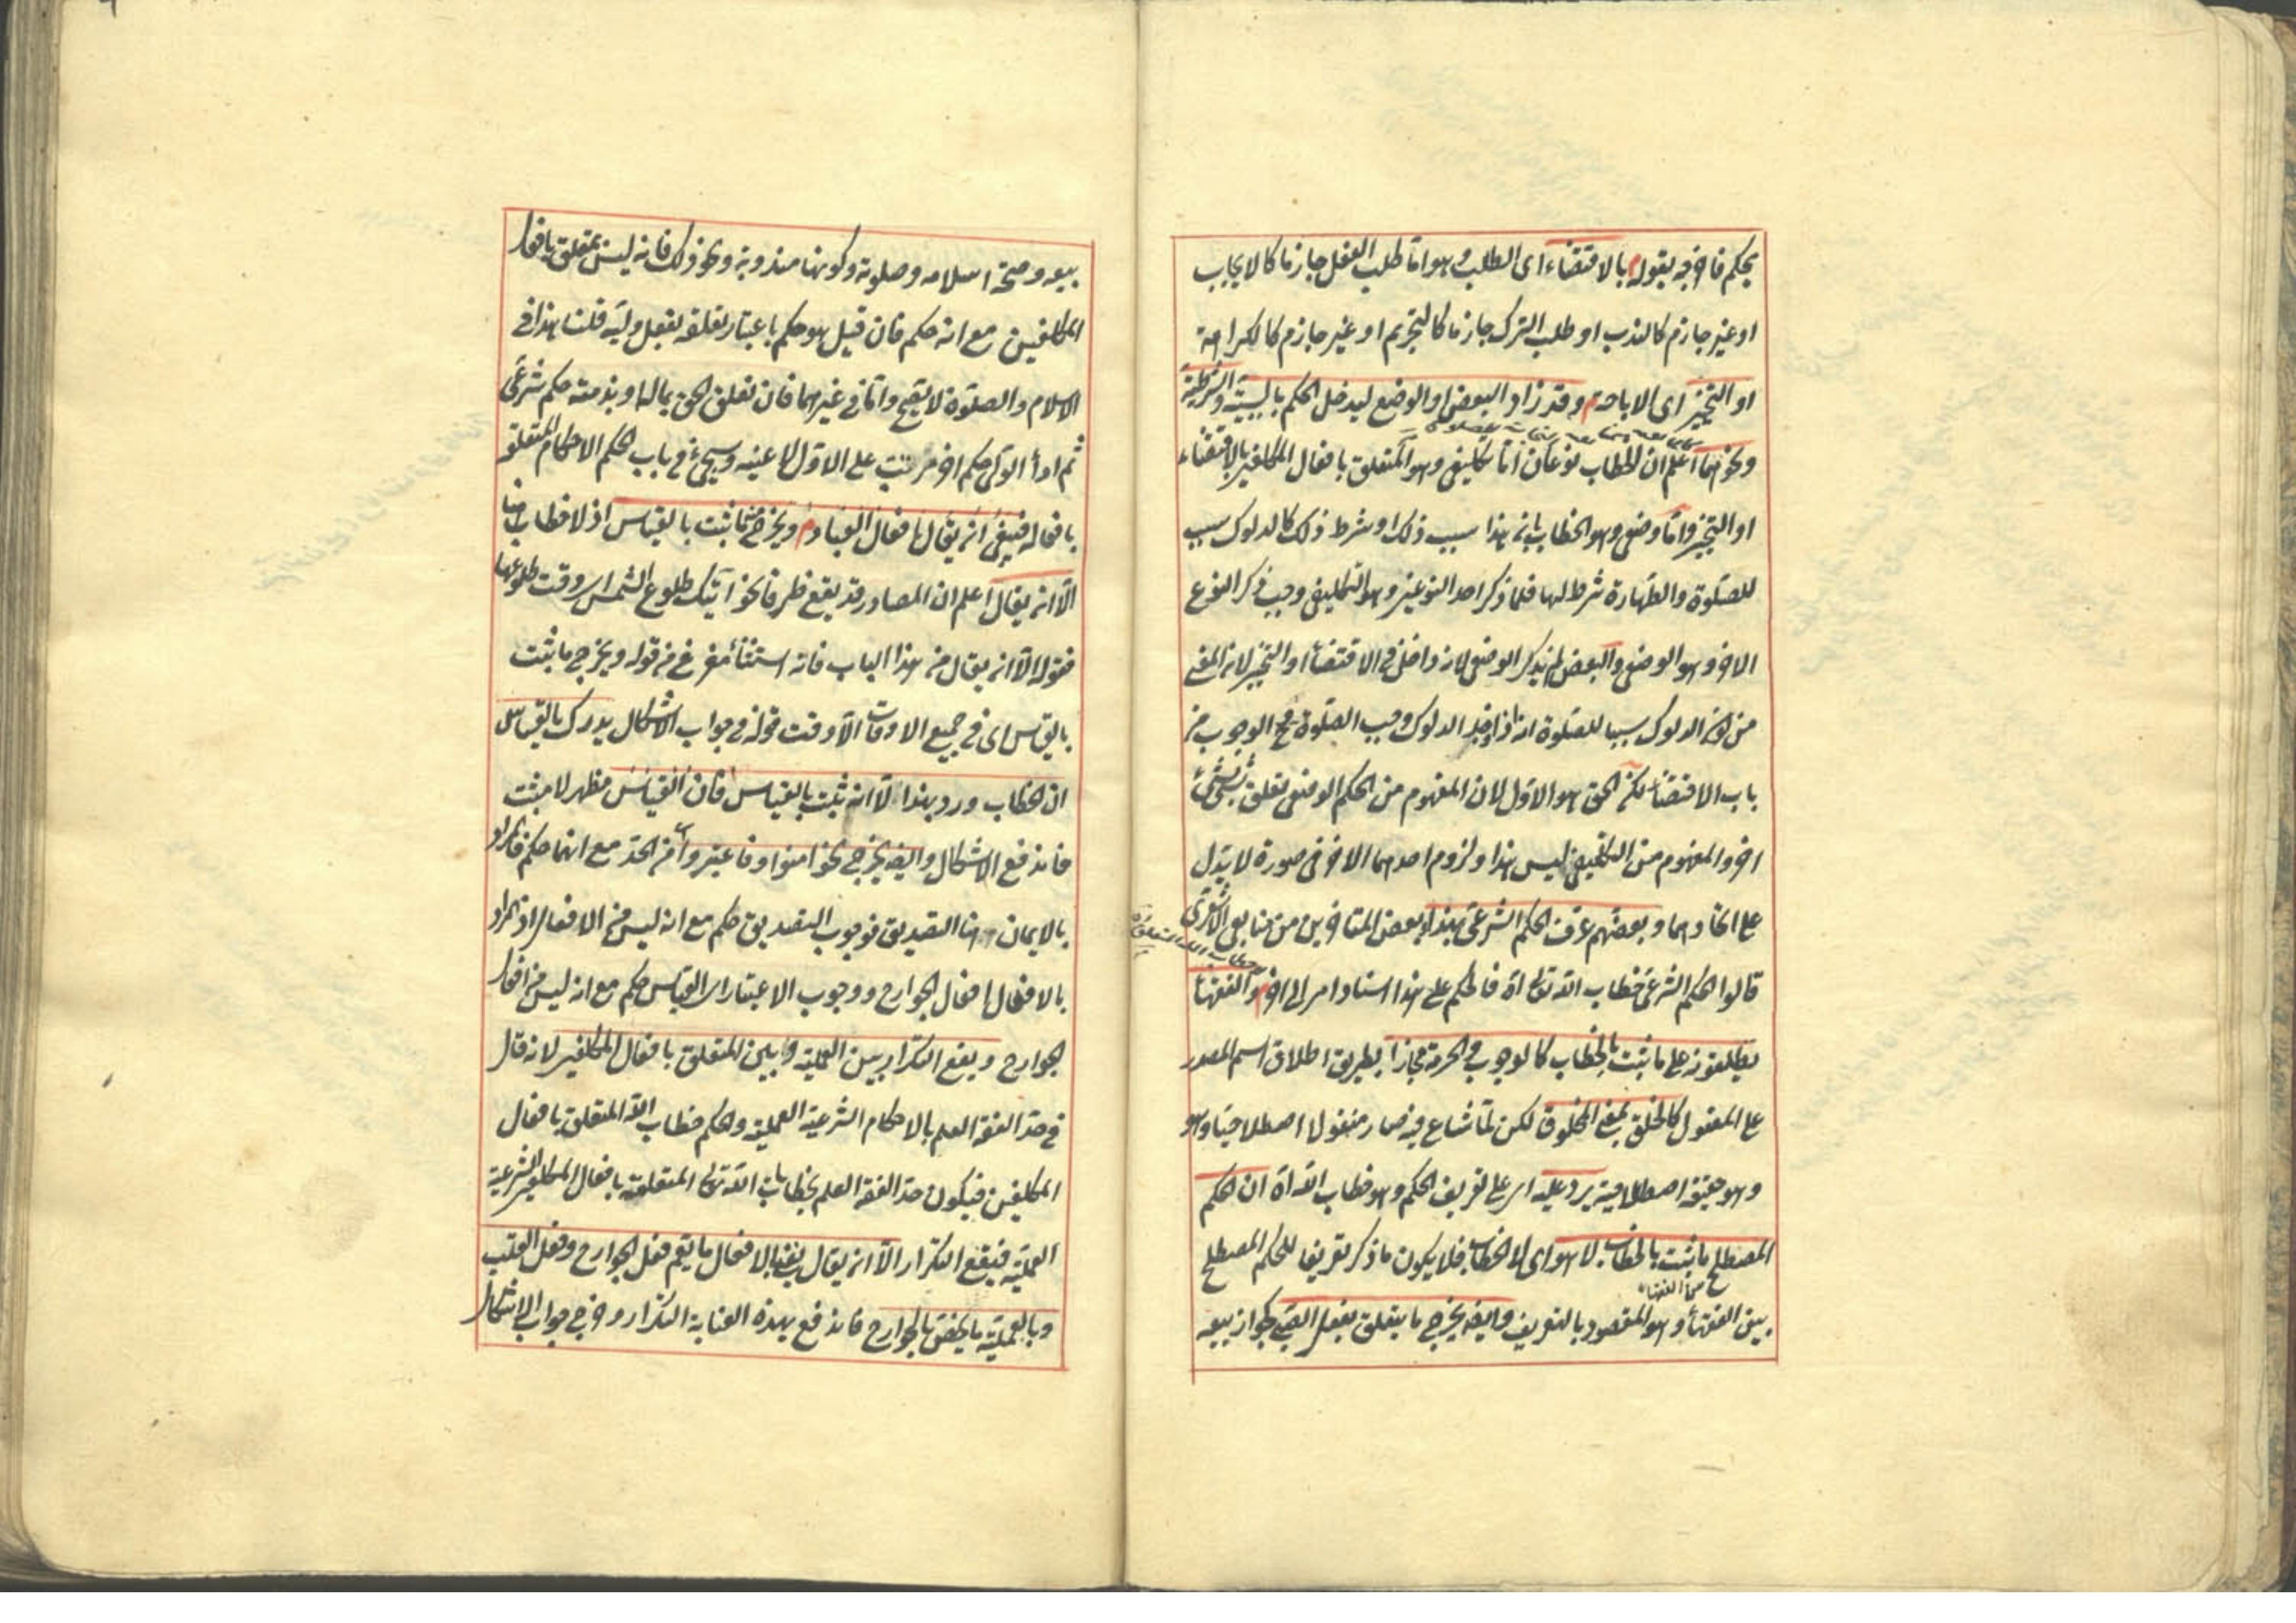 يحكم فاخرجه بقوله بالاقتضاء اى الطلب وهو اما طلب الفعل جازما كالايجاب
او غير جازم كالندب او طلب الترك جازما كالتحريم او غير جازم كالكراهة
او التخيير اى الاباحة م وقد زاد البعض او الوضع ليدخل الحكم بالسببية والشرطية
ونحوهما اعلم ان الخطاب نوعان اما تكليفى وهو المتعلق بافعال المكلفين بالاقتضاء
او التخيير واما وضعى وهو الخطاب بانه هذا سبب ذلك او شرط ذلك كالدلوك سبب
للصلوة والطهارة شرط لها فلما ذكر احد النوعين وهو التكليفى وجب ذكر النوع
الاخر وهو الوضعى والبعض لم يذكر الوضعى لانه داخل فى الاقتضاء او التخيير لان المعنى
من كون الدلوك سببا للصلوة انه اذا وجد الدلوك وجب الصلوة ح الوجوب من
باب الاقتضاء لكن الحق هو الاول لان المفهوم من الحكم الوضعى تعلق شئ بشئ
اخر والمفهوم من التكليفى ليس هذا ولزوم احدهما الاخر فى صورة لا يدل
على اتحادهما وبعضهم عرف الحكم الشرعى بهذا اى بعض المتاخرين من متابعى الاشعرى
قالوا الحكم الشرعى خطاب الله تعالى اه فالحكم على هذا اسناد امر الى اخر م والفقهاء
يطلقونه على ما ثبت بالخطاب كالوجوب والحرمة مجازا بطريق اطلاق اسم المصدر
على المفعول كالخلق بمعنى المخلوق لكن لما شاع فيه صار منقولا اصطلاحيا وهو
وهو حقيقة اصطلاحية يرد عليه اى على تعريف الحكم وهو خطاب الله اه ان الحكم
المصطلح ما ثبت بالخطاب لا هو اى لا الخطاب فلا يكون ما ذكر تعريفا للحكم المصطلح
بين الفقهاء وهو المقصود بالتعريف وايضا يخرج ما يتعلق بفعل الصبى كجواز بيعه
بيعه وصحة اسلامه وصلوته وكونها مندوبة ونحو ذلك فانه ليس بمتعلق بافعال
المكلفين مع انه حكم فان قيل هو حكم باعتبار تعلقه بفعل وليه قلنا هذا فى
الاسلام والصلوة لا يصح واما فى غيرهما فان تعلق الحق بماله او بذمته حكم شرعى
ثم اداء الولى حكم اخر مرتب على الاول لا عينه وسيجئ فى باب الحكم الاحكام المتعلقة
بافعاله فينبغى ان يقال بافعال العباد م ويخرج منه ما ثبت بالقياس اذ لا خطاب هنا
الا ان يقال اعلم ان المصادر قد يقع ظرفا نحو آتيك طلوع الشمس اى وقت طلوعها
فقوله الا ان يقال من هذا الباب فانه استثناء مفرغ من قوله ويخرج ما ثبت
بالقياس اى فى جميع الاوقات الا وقت قوله فى جواب الاشكال يدرك بالقياس
ان الخطاب ورد بهذا لا انه ثبت بالقياس فان القياس مظهر لا مثبت
فاندفع الاشكال وايضا يخرج نحو امنوا وفاعتبروا من الحد مع انهما حكم فالمراد
بالايمان هنا التصديق فوجوب التصديق حكم مع انه ليس من الافعال اذ المراد
بالافعال افعال الجوارح ووجوب الاعتبار اى القياس حكم مع انه ليس من افعال
الجوارح ويقع التكرار بين العملية وبين المتعلق بافعال المكلفين لانه قال
فى حد الفقه العلم بالاحكام الشرعية العملية والحكم خطاب الله المتعلق بافعال
المكلفين فيكون حد الفقه العلم بخطابات الله تعالى المتعلقة بافعال المكلفين الشرعية
العملية فيقع التكرار الا ان يقال يعنى بالافعال ما يعم فعل الجوارح وفعل القلب
وبالعملية ما يختص بالجوارح فاندفع بهذه العناية التكرار وخرج جواب الاشكال